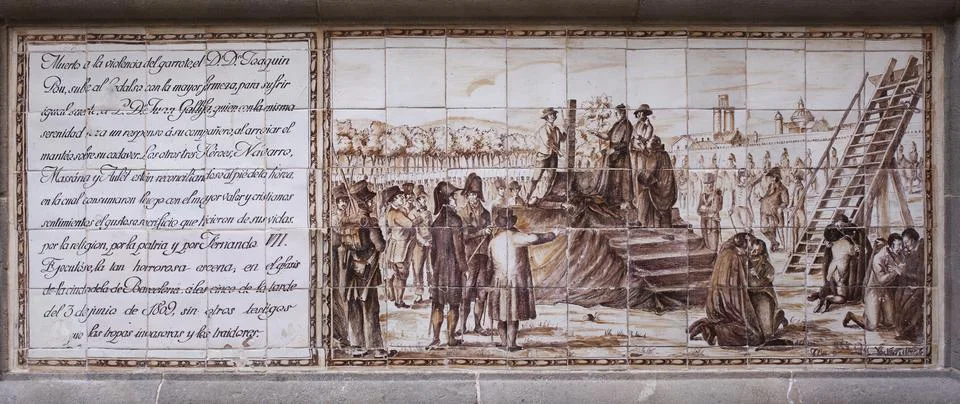 Muerto a la violencia del garrote, el D.D. Joaquin
Pou, sube al cadalso con la mayor firmeza, para sufrir
igual suerte, el P. D. Juan Gallifa, quien con la misma
serenidad reza un responso á su compañero, al arrojar el
mantéo sobre su cadaver. Los otros tres Héroes, Navarro,
Massána y Aulét están reconciliandose al pie de la horca
en la cual consumaron luego con el mayor valor y cristianos
sentimientos el gustoso sacrificio que hicieron de sus vidas
por la religion, por la patria y por Fernando VII.
Ejecutóse, la tan horrorosa escena, en el glasis
de la ciudadela de Barcelona a les cinco de la tarde
del 3 de junio de 1809, sin otros testigos
que las tropas invasoras y los traidores.